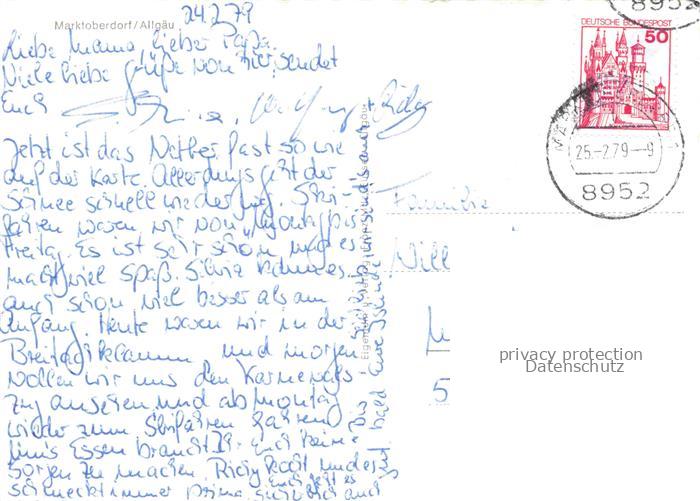 Marktoberdorf / Allgäu
24.2.79
Liebe Mama, lieber Papa.
Viele liebe Grüße von hier sendet
Euch
Jetzt ist das Wetter fast so wie
auf der Karte. Allerdings geht der
Schnee schnell wieder weg. Ski-
fahren waren wir von Montag bis
Freitag. Es ist sehr schön und es
macht viel Spaß. Silvia kann es
auch schon viel besser als am
Anfang. Heute waren wir in der
Breitachklamm und morgen
wollen wir uns den Karnevals
zug ansehen und ab Montag
wieder zum Skifahren fahren
Ums Essen braucht Ihr Euch keine
Sorgen zu machen. Ricky kocht und es
schmeckt immer prima.
bald Eure
Familie
Will
5
DEUTSCHE BUNDESPOST
50
8952
25.-2.79-9
8952
privacy protection
Datenschutz